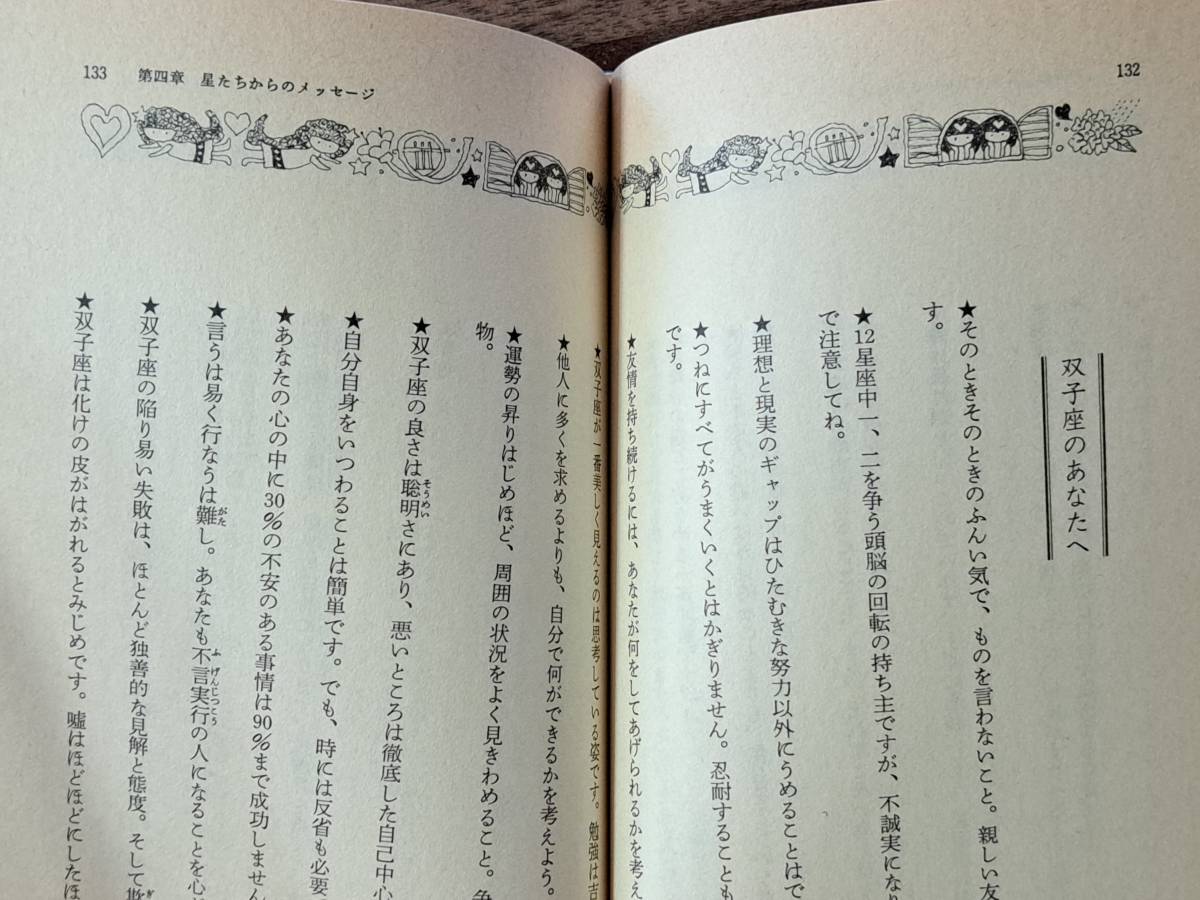 132
双子座のあなたへ
★そのときそのときのふんい気で、ものを言わないこと。親しい友
す。
★12星座中一、二を争う頭脳の回転の持ち主ですが、不誠実になり
で注意してね。
★理想と現実のギャップはひたむきな努力以外にうめることはで
★つねにすべてがうまくいくとはかぎりません。忍耐することも
です。
★友情を持ち続けるには、あなたが何をしてあげられるかを考え
133 第四章 星たちからのメッセージ
★双子座が一番美しく見えるのは思考している姿です。勉強は吉
★他人に多くを求めるよりも、自分で何ができるかを考えよう。
★運勢の昇りはじめほど、周囲の状況をよく見きわめること。争
物。
★双子座の良さは聡明さにあり、悪いところは徹底した自己中心
★自分自身をいつわることは簡単です。でも、時には反省も必要
★あなたの心の中に30%の不安のある事情は90%まで成功しません
★言うは易く行なうは難し。あなたも不言実行の人になることを心
★双子座の陥り易い失敗は、ほとんど独善的な見解と態度。そして
★双子座は化けの皮がはがれるとみじめです。嘘はほどほどにしたほ